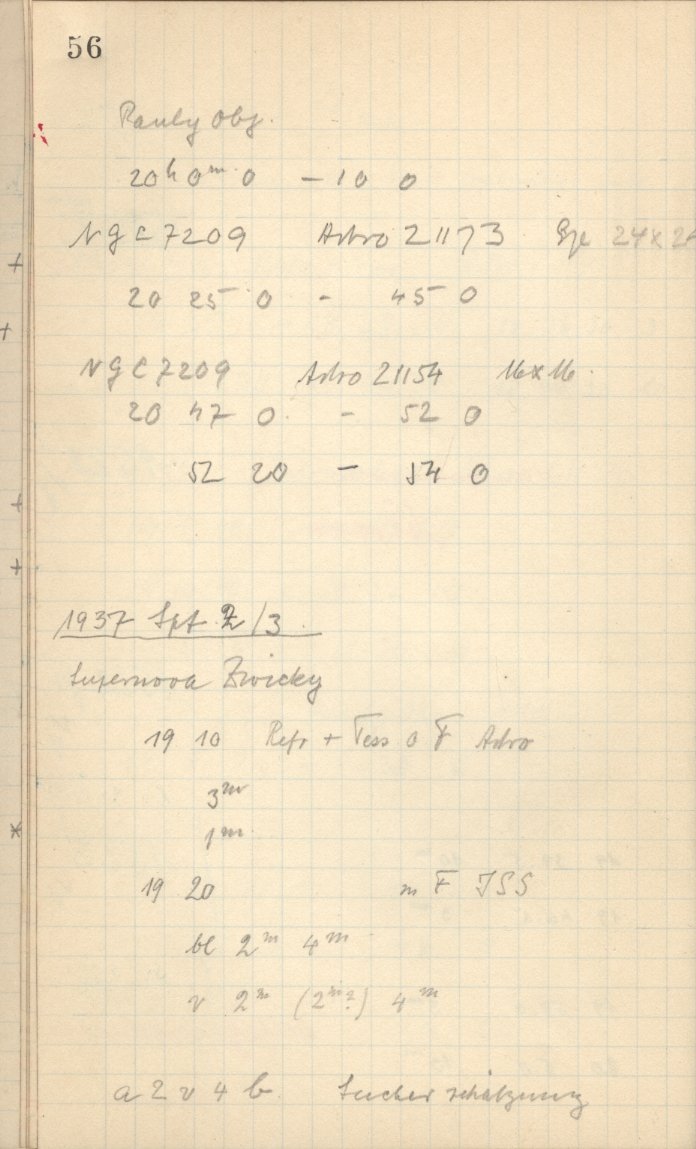 56
Pauly Obj.
20h 0m 0 – 10 0
NGC 7209 Astro 21173 24x24
20 25 0 - 45 0
NGC 7209 Astro 21154 16x16.
20 47 0. - 52 0
52 20 – 54 0
1937 Spt. 2/3.
Supernova Zwicky
19 10 Refr + Tess o F Astro
3m
1m
19 20 m F ISS
bl 2m 4m
v 2m (2m?) 4m
a 2 v 4 b. Sucherschätzung